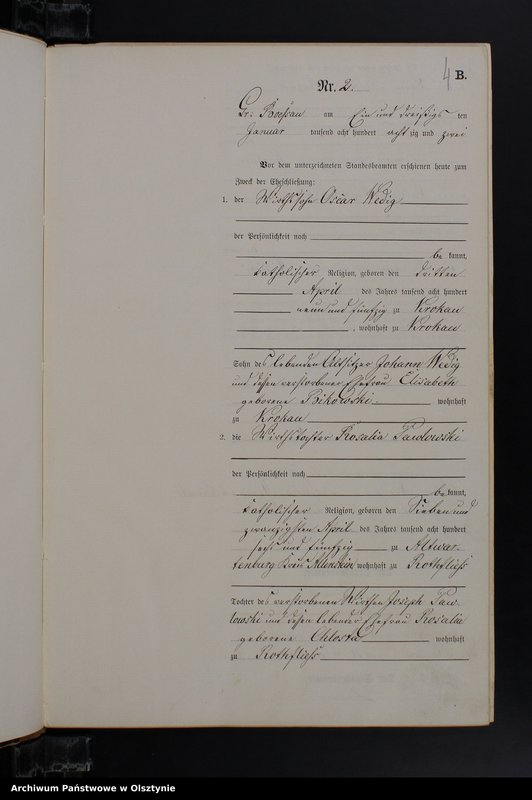 4 B.
Nr. 2.
Gr: Boessau am Ein und dreißigs ten
Januar tausend acht hundert acht zig und zwei
Vor dem unterzeichneten Standesbeamten erschienen heute zum
Zweck der Eheschließung:
1. der Wirthssohn Oscar Wedig
der Persönlichkeit nach
be kannt,
katholischer Religion, geboren den dritten
April des Jahres tausend acht hundert
neun und fünfzig zu Krokau
, wohnhaft zu Krokau
Sohn des lebenden Altsitzer Johann Wedig
und dessen verstorbener Ehefrau Elisabeth
geborene Bikowski wohnhaft
zu Krokau
2. die Wirthstochter Rosalia Pawlowski
der Persönlichkeit nach
be kannt,
katholischer Religion, geboren den Sieben und
zwanzigsten April des Jahres tausend acht hundert
sechs und fünfzig zu Altwar-
tenburg Kreis Allenstein wohnhaft zu Rothfließ
Tochter des verstorbenen Wirthen Joseph Paw-
lowski und dessen lebender Ehefrau Rosalia
geborene Chlosta wohnhaft
zu Rothfließ
Archiwum Państwowe w Olsztynie